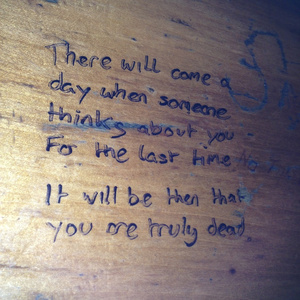 There will come a
day when someone
thinks about you
For the last time
It will be then that
you are truly dead